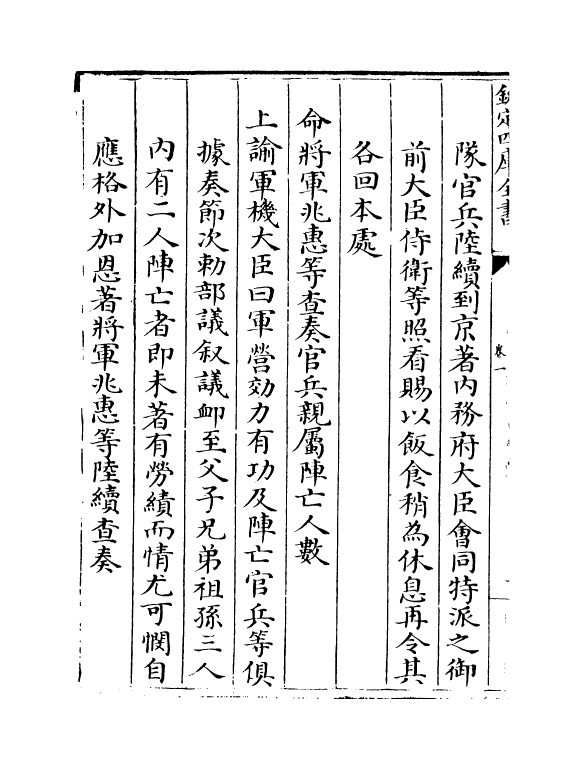 欽定四庫全書
卷一
隊官兵陸續到京著内務府大臣會同特派之御
前大臣侍衛等照看賜以飯食稍為休息再令其
各回本處
命將軍兆惠等查奏官兵親屬陣亡人數
上諭軍機大臣曰軍營効力有功及陣亡官兵等俱
據奏節次勅部議叙議䘏至父子兄弟祖孫三人
内有二人陣亡者即未著有勞績而情尤可憫自
應格外加恩著將軍兆惠等陸續查奏